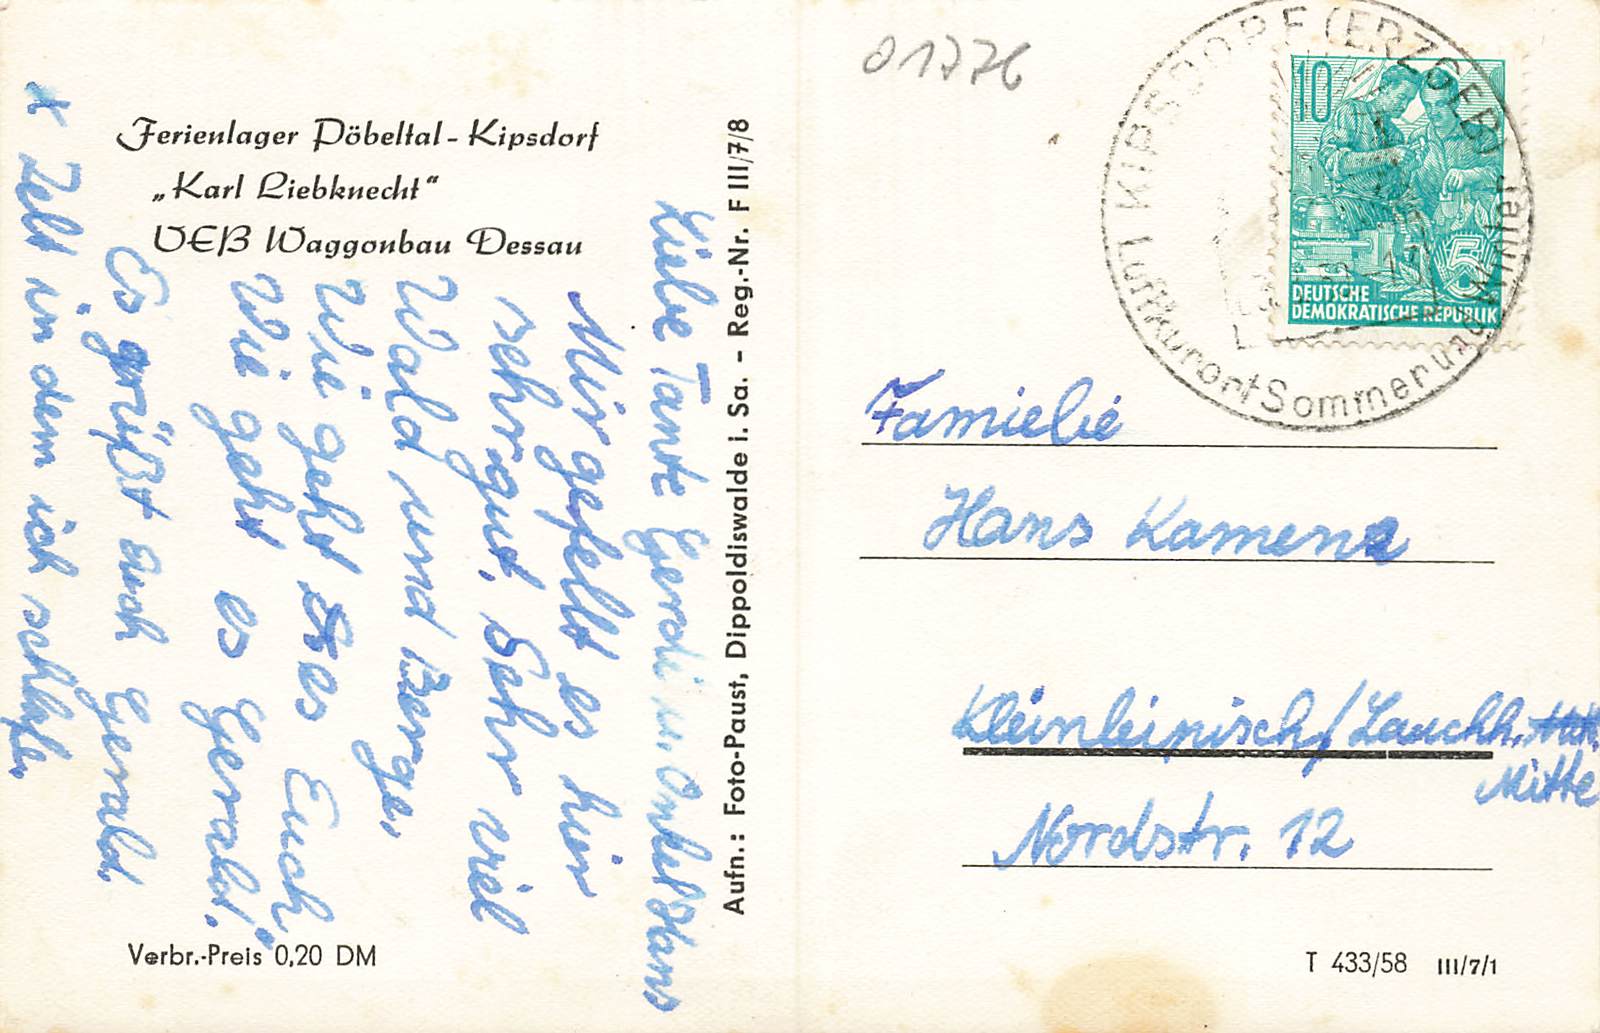 Ferienlager Pöbeltal-Kipsdorf
„Karl Liebknecht“
VEB Waggonbau Dessau
Liebe Tante Gerdi u. Onkel Hans
Mir gefellt es hier
sehr gut. Sehr viel
Wald und Berge.
Wie geht es Euch
Wie geht es Gerald?
Es grüßt euch Gerald.
x Zelt in dem ich schlafe.
Verbr.-Preis 0,20 DM
Aufn.: Foto-Paust, Dippoldiswalde i. Sa. – Reg.-Nr. F III/7/8
01776
KIPSDORF (ERZGEB)
Luftkurort Sommer und Winter
10
5
DEUTSCHE
DEMOKRATISCHE REPUBLIK
Familie
Hans Kamenz
Kleinleipisch/Lauchh.
Mitte
Nordstr. 12
T 433/58 III/7/1